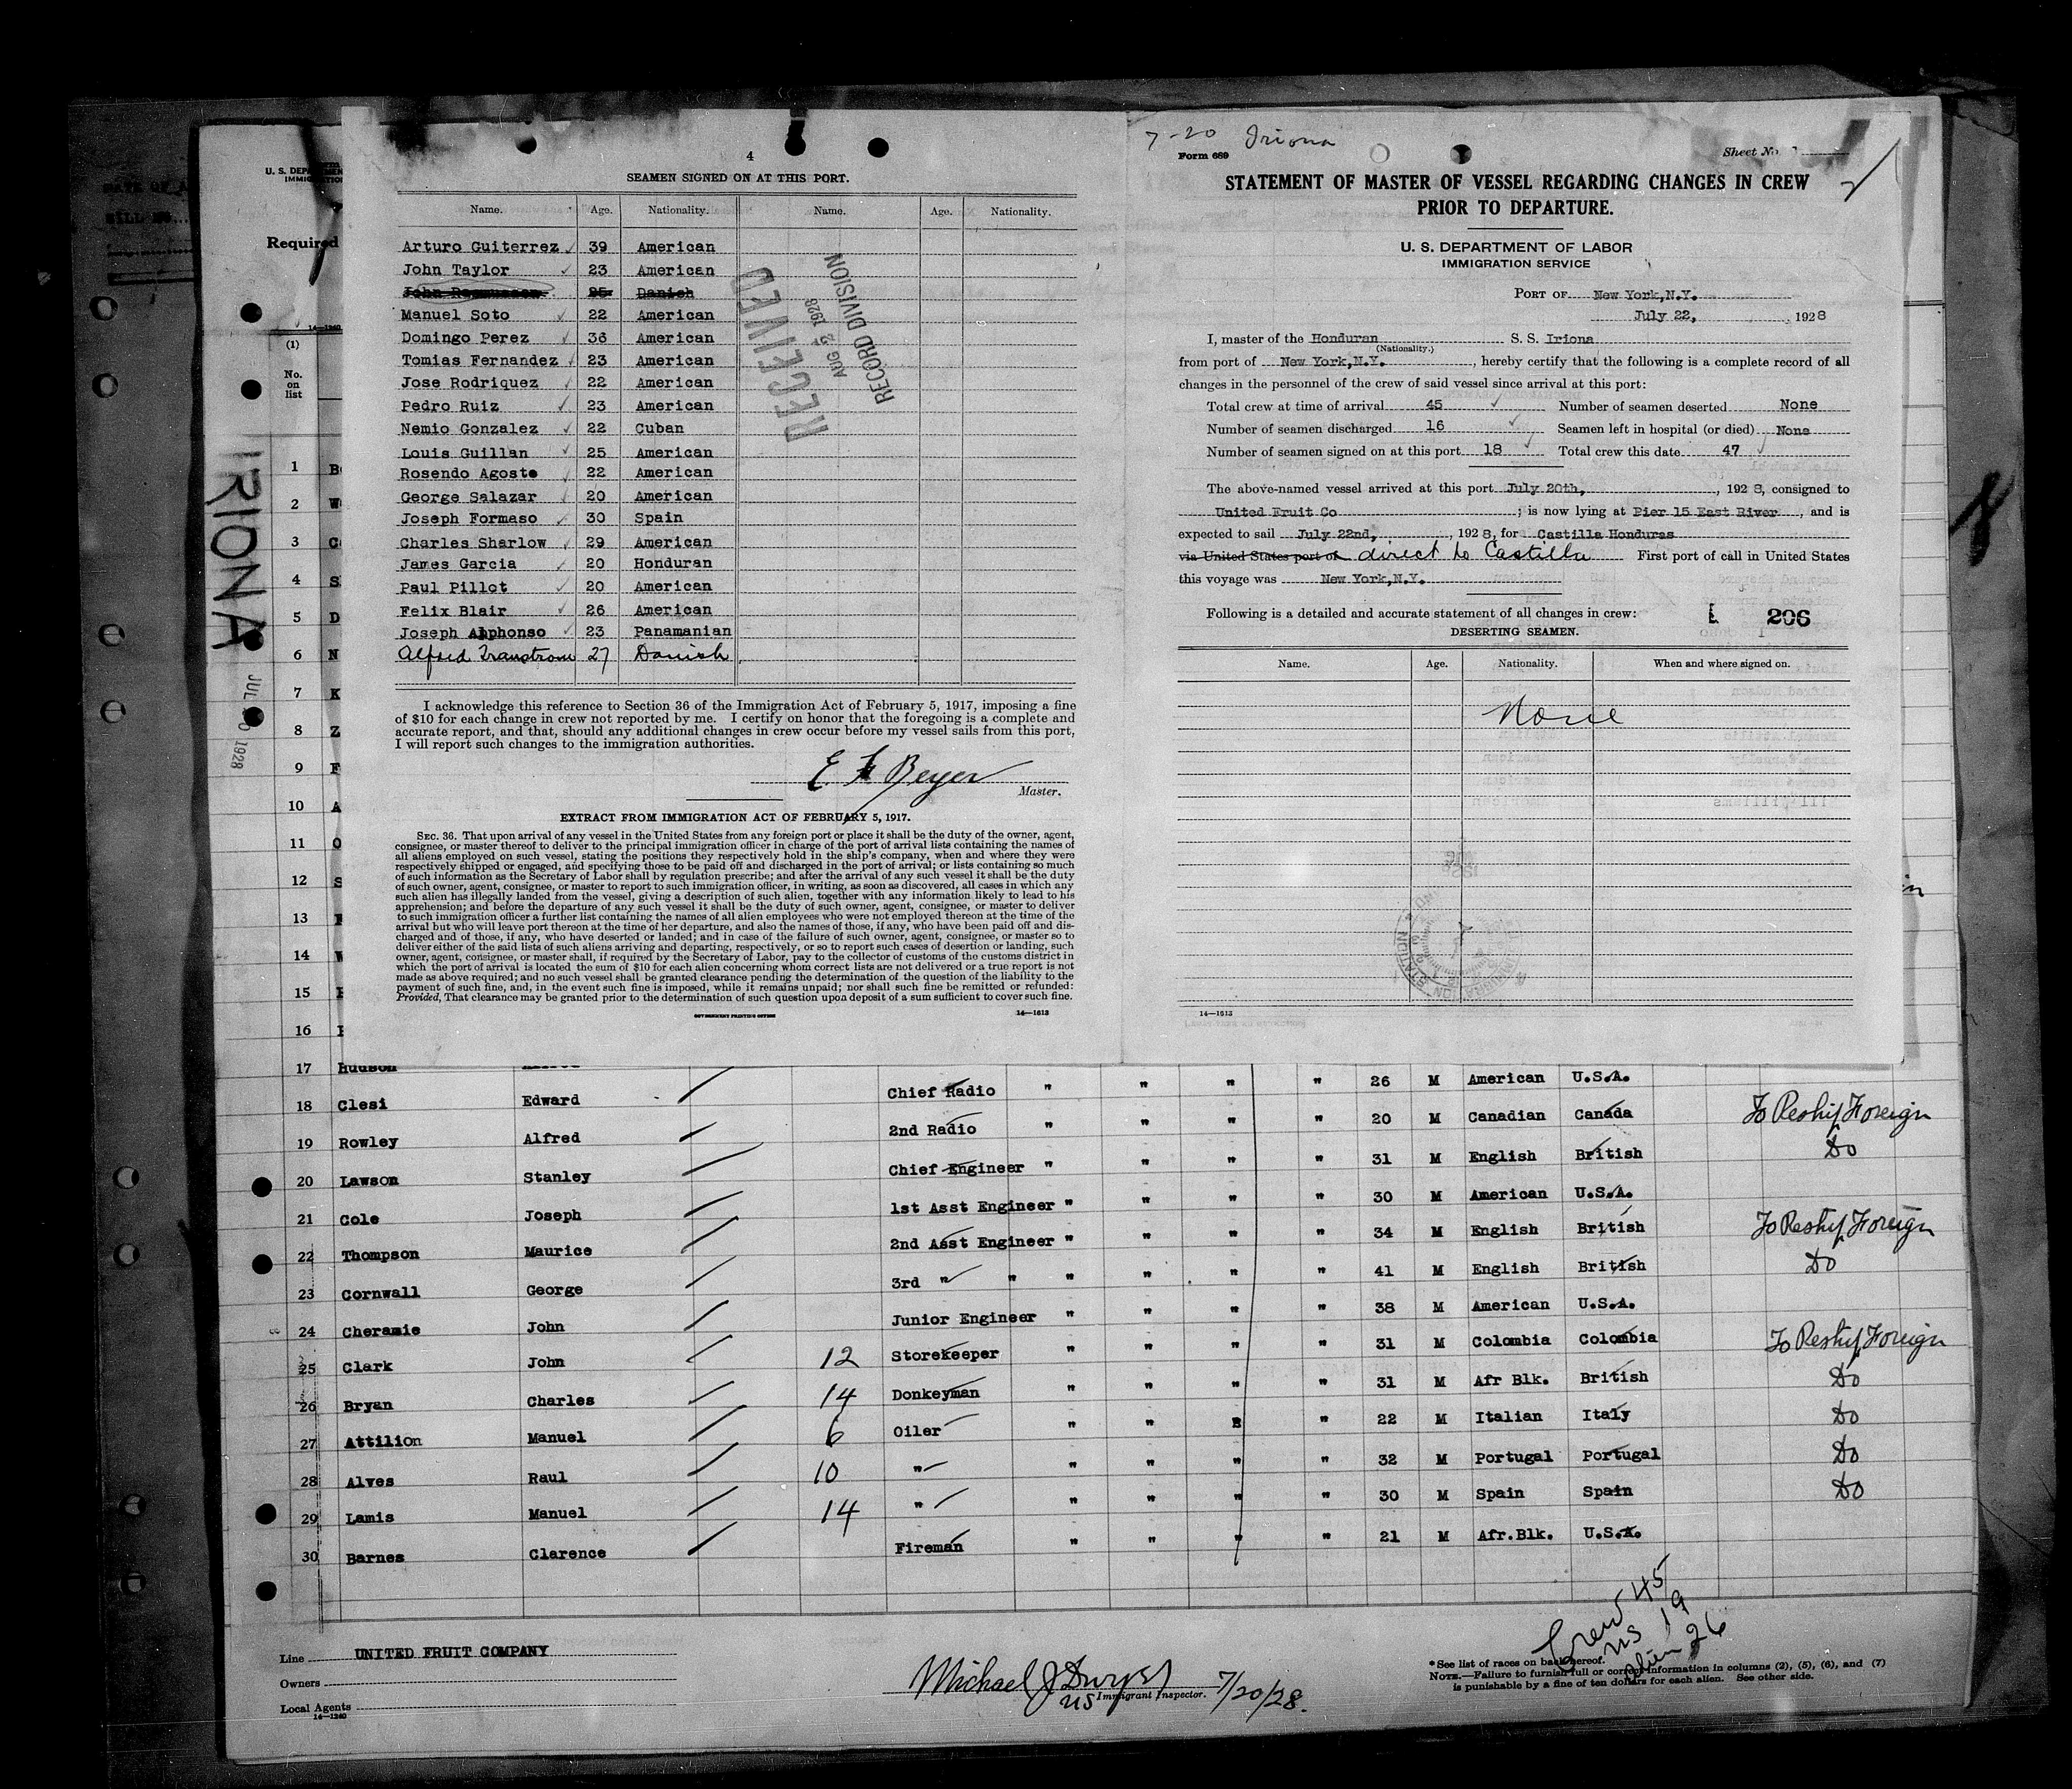 4
SEAMEN SIGNED ON AT THIS PORT.
Name. Age. Nationality. Name. Age. Nationality.
Arturo Guiterrez 39 American
John Taylor 23 American
John Rasmussen 25 Danish
Manuel Soto 22 American
Domingo Perez 36 American
Tomias Fernandez 23 American
Jose Rodriquez 22 American
Pedro Ruiz 23 American
Nemio Gonzalez 22 Cuban
Louis Guillan 25 American
Rosendo Agosto 22 American
George Salazar 20 American
Joseph Formaso 30 Spain
Charles Sharlow 29 American
James Garcia 20 Honduran
Paul Pillot 20 American
Felix Blair 26 American
Joseph Alphonso 23 Panamanian
Alfred Transtrom 27 Danish
RECEIVED
AUG 2 1928
RECORD DIVISION
I acknowledge this reference to Section 36 of the Immigration Act of February 5, 1917, imposing a fine
of $10 for each change in crew not reported by me. I certify on honor that the foregoing is a complete and
accurate report, and that, should any additional changes in crew occur before my vessel sails from this port,
I will report such changes to the immigration authorities.
E Beyer
Master.
EXTRACT FROM IMMIGRATION ACT OF FEBRUARY 5, 1917.
SEC. 36. That upon arrival of any vessel in the United States from any foreign port or place it shall be the duty of the owner, agent,
consignee, or master thereof to deliver to the principal immigration officer in charge of the port of arrival lists containing the names of
all aliens employed on such vessel, stating the positions they respectively hold in the ship's company, when and where they were
respectively shipped or engaged, and specifying those to be paid off and discharged in the port of arrival; or lists containing so much
of such information as the Secretary of Labor shall by regulation prescribe; and after the arrival of any such vessel it shall be the duty
of such owner, agent, consignee, or master to report to such immigration officer, in writing, as soon as discovered, all cases in which any
such alien has illegally landed from the vessel, giving a description of such alien, together with any information likely to lead to his
apprehension; and before the departure of any such vessel it shall be the duty of such owner, agent, consignee, or master to deliver
to such immigration officer a further list containing the names of all alien employees who were not employed thereon at the time of the
arrival but who will leave port thereon at the time of her departure, and also the names of those, if any, who have been paid off and dis-
charged and of those, if any, who have deserted or landed; and in case of the failure of such owner, agent, consignee, or master so to
deliver either of the said lists of such aliens arriving and departing, respectively, or so to report such cases of desertion or landing, such
owner, agent, consignee, or master shall, if required by the Secretary of Labor, pay to the collector of customs of the customs district in
which the port of arrival is located the sum of $10 for each alien concerning whom correct lists are not delivered or a true report is not
made as above required; and no such vessel shall be granted clearance pending the determination of the question of the liability to the
payment of such fine, and, in the event such fine is imposed, while it remains unpaid; nor shall such fine be remitted or refunded:
Provided, That clearance may be granted prior to the determination of such question upon deposit of a sum sufficient to cover such fine.
GOVERNMENT PRINTING OFFICE 14—1613
7-20 Iriona
Form 689 Sheet No.
STATEMENT OF MASTER OF VESSEL REGARDING CHANGES IN CREW
PRIOR TO DEPARTURE.
U. S. DEPARTMENT OF LABOR
IMMIGRATION SERVICE
PORT OF New York,N.Y.
July 22, 1928
I, master of the Honduran S. S. Iriona
(Nationality.)
from port of New York,N.Y., hereby certify that the following is a complete record of all
changes in the personnel of the crew of said vessel since arrival at this port:
Total crew at time of arrival 45 Number of seamen deserted None
Number of seamen discharged 16 Seamen left in hospital (or died) None
Number of seamen signed on at this port 18 Total crew this date 47
The above-named vessel arrived at this port July 20th, 1928, consigned to
United Fruit Co ; is now lying at Pier 15 East River, and is
expected to sail July 22nd, 1928, for Castilla Honduras
via United States port of direct to Castilla First port of call in United States
this voyage was New York,N.Y.
Following is a detailed and accurate statement of all changes in crew: L 206
DESERTING SEAMEN.
Name. Age. Nationality. When and where signed on.
None
14—1613
U. S. DEP
Required
14—1240
(1)
No.
on
list
IRIONA
JUL 20 1928
1
2
3
4
5 D
6 N
7 K
8 Z
9 F
10 A
11 O
12 S
13
14
15
16
17 Hudson
18 Clesi Edward Chief Radio " " " " 26 M American U.S.A.
19 Rowley Alfred 2nd Radio " " " " 20 M Canadian Canada To Reship Foreign
20 Lawson Stanley Chief Engineer " " " " 31 M English British Do
21 Cole Joseph 1st Asst Engineer " " " " 30 M American U.S.A.
22 Thompson Maurice 2nd Asst Engineer " " " " 34 M English British To Reship Foreign
23 Cornwall George 3rd " " " " " " 41 M English British Do
24 Cheramie John Junior Engineer " " " " 38 M American U.S.A.
25 Clark John 12 Storekeeper " " " " 31 M Colombia Colombia To Reship Foreign
26 Bryan Charles 14 Donkeyman " " " " 31 M Afr Blk. British Do
27 Attilion Manuel 6 Oiler " " " " 22 M Italian Italy Do
28 Alves Raul 10 " " " " " 32 M Portugal Portugal Do
29 Lamis Manuel 14 " " " " " 30 M Spain Spain Do
30 Barnes Clarence Fireman " " " " 21 M Afr.Blk. U.S.A.
Crew 45
US 19
Alien 26
Line UNITED FRUIT COMPANY
Owners
Local Agents
14—1240
Michael J Dwyer
US Immigrant Inspector. 7/20/28.
*See list of races on back hereof.
NOTE.—Failure to furnish full or correct information in columns (2), (5), (6), and (7)
is punishable by a fine of ten dollars for each alien. See other side.